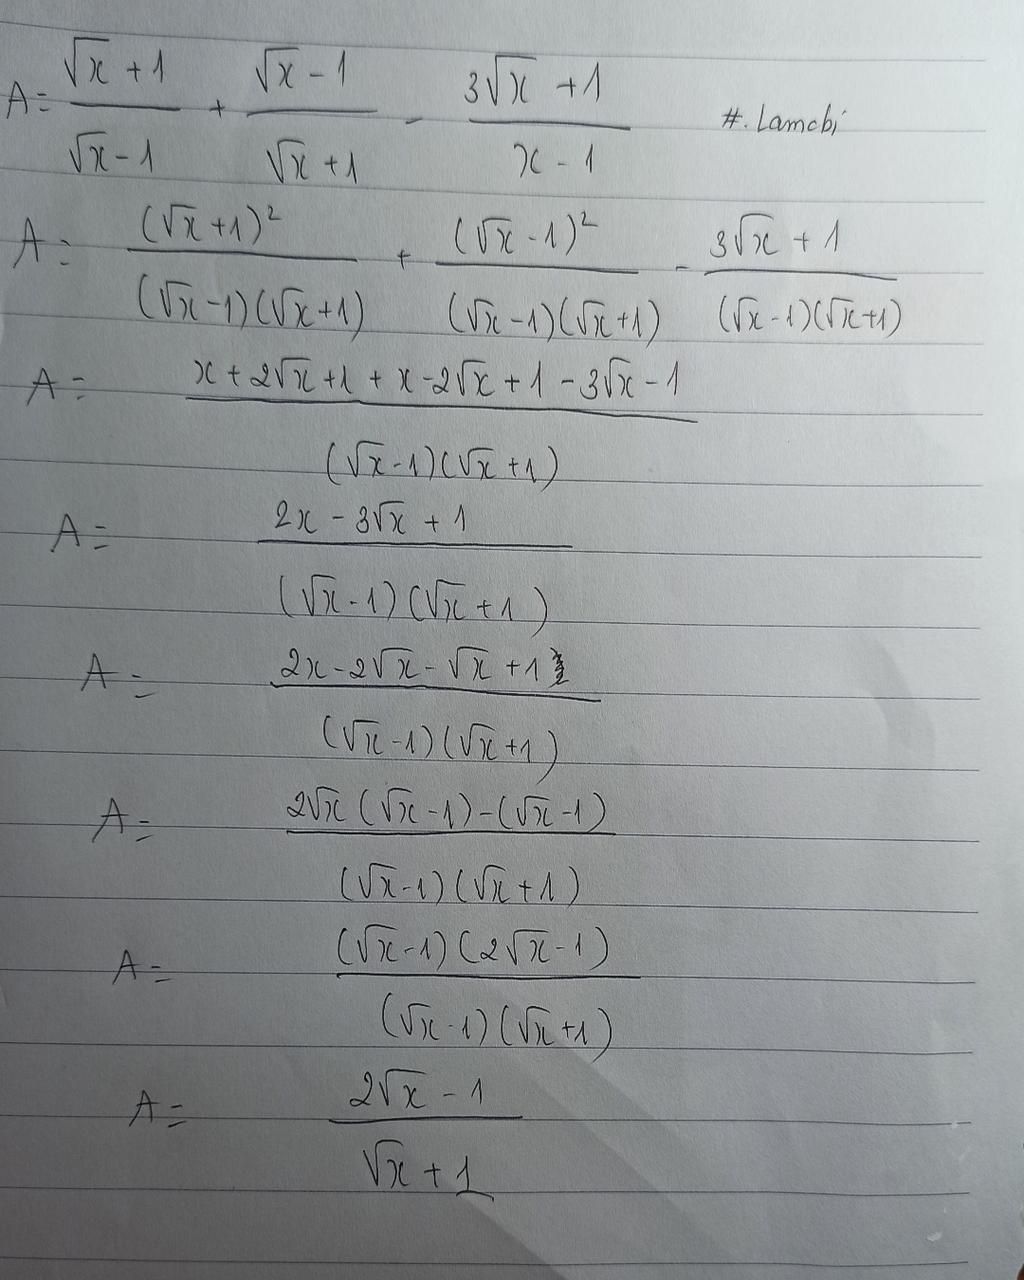 A = \frac{\sqrt{x}+1}{\sqrt{x}-1} + \frac{\sqrt{x}-1}{\sqrt{x}+1} - \frac{3\sqrt{x}+1}{x-1} #. Lamcbi
A = \frac{(\sqrt{x}+1)^2}{(\sqrt{x}-1)(\sqrt{x}+1)} + \frac{(\sqrt{x}-1)^2}{(\sqrt{x}-1)(\sqrt{x}+1)} - \frac{3\sqrt{x}+1}{(\sqrt{x}-1)(\sqrt{x}+1)}
A = \frac{x+2\sqrt{x}+1+x-2\sqrt{x}+1-3\sqrt{x}-1}{(\sqrt{x}-1)(\sqrt{x}+1)}
A = \frac{2x-3\sqrt{x}+1}{(\sqrt{x}-1)(\sqrt{x}+1)}
A = \frac{2x-2\sqrt{x}-\sqrt{x}+1}{(\sqrt{x}-1)(\sqrt{x}+1)}
A = \frac{2\sqrt{x}(\sqrt{x}-1)-(\sqrt{x}-1)}{(\sqrt{x}-1)(\sqrt{x}+1)}
A = \frac{(\sqrt{x}-1)(2\sqrt{x}-1)}{(\sqrt{x}-1)(\sqrt{x}+1)}
A = \frac{2\sqrt{x}-1}{\sqrt{x}+1}